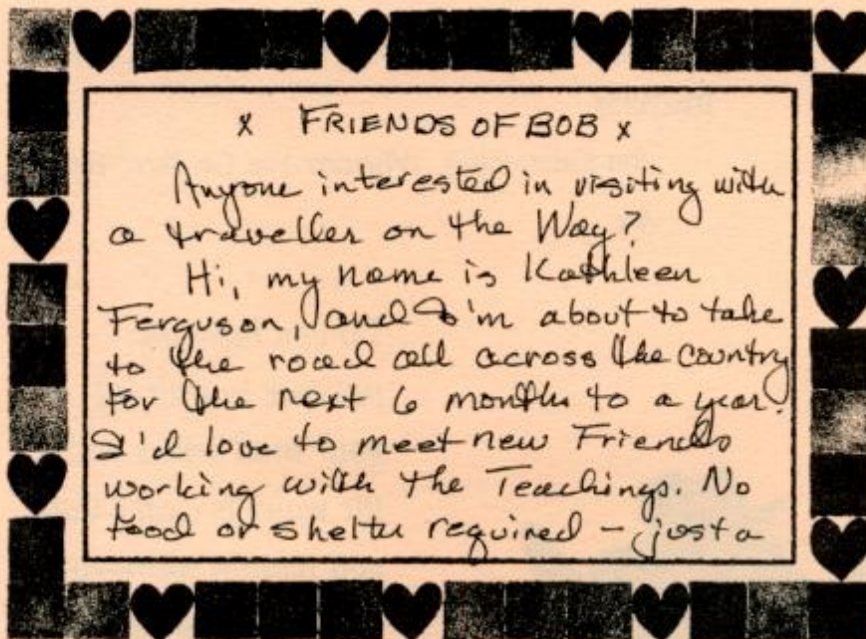 x FRIENDS OF BOB x
Anyone interested in visiting with
a traveller on the Way?
Hi, my name is Kathleen
Ferguson, and I'm about to take
to the road all across the country
for the next 6 months to a year.
I'd love to meet new Friends
working with the Teachings. No
food or shelter required – just a